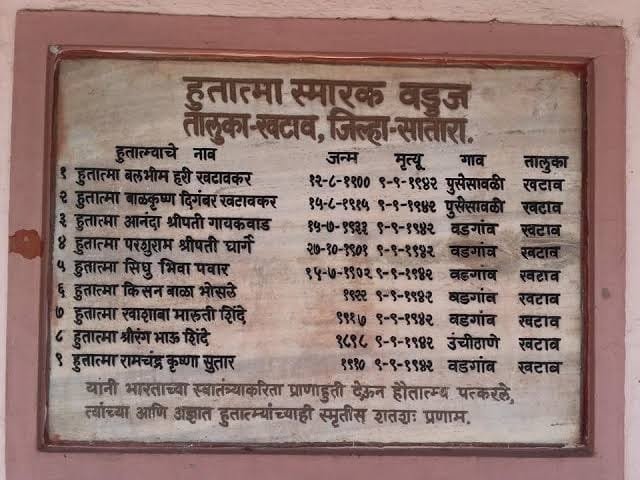 हुतात्मा स्मारक वडुज
तालुका-खटाव, जिल्हा-सातारा.
हुतात्म्याचे नाव जन्म मृत्यू गाव तालुका
१ हुतात्मा बलभीम हरी खटावकर १२-८-१९०० ९-९-१९४२ पुसेसावळी खटाव
२ हुतात्मा बाळकृष्ण दिगंबर खटावकर १५-८-१९१५ ९-९-१९४२ पुसेसावळी खटाव
३ हुतात्मा आनंदा श्रीपती गायकवाड १५-७-१९३३ ९-९-१९४२ वडगांव खटाव
४ हुतात्मा परशुराम श्रीपती घार्गे २७-१०-१९०१ ९-९-१९४२ वडगांव खटाव
५ हुतात्मा सिधु भिवा पवार १५-७-१९०२ ९-९-१९४२ वडगांव खटाव
६ हुतात्मा किसन बाळा भोसले १९२२ ९-९-१९४२ वडगांव खटाव
७ हुतात्मा खाशाबा मारुती शिंदे १९१७ ९-९-१९४२ वडगांव खटाव
८ हुतात्मा श्रीरंग भाऊ शिंदे १८९८ ९-९-१९४२ उंचीठाणे खटाव
९ हुतात्मा रामचंद्र कृष्णा सुतार १९१० ९-९-१९४२ वडगांव खटाव
यांनी भारताच्या स्वातंत्र्याकरिता प्राणाहुती देऊन हौतात्म्य पत्करले,
त्यांच्या आणि अज्ञात हुतात्म्यांच्याही स्मृतीस शतशः प्रणाम.